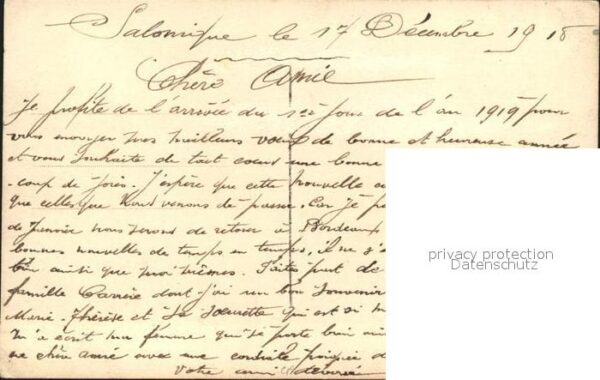 Salonique le 17 Décembre 1918
Chère Amie
Je profite de l'arrivée du 1er jour de l'an 1919 pour
vous envoyer mes meilleurs voeux de bonne et heureuse année
et vous souhaite de tout coeur une bonne
-coup de joies. J'espère que cette nouvelle
que celles que nous venons de passer. Car je
de Janvier nous serons de retour à Bordeaux
bonnes nouvelles de temps en temps, il
bien ainsi que moi mêmes. Faites part de
famille Carrère dont j'ai un bon souvenir
Marie-Thérèse et sa soeurette qui est si
m'a écrit ma femme qui se porte bien
ma chère amie avec une poignée
Votre ami dévoué
privacy protection
Datenschutz